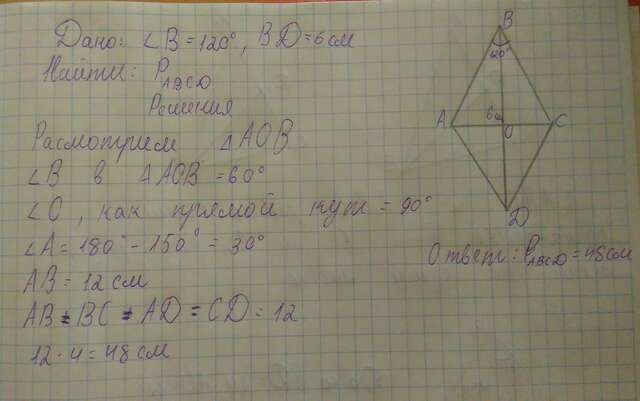 Дано: ∠B = 120°, BD = 6 см
Найти: P_ABCD
Решения
Расмотрием △AOB
∠B в △AOB = 60°
∠O, как прямой кут = 90°
∠A = 180° - 150° = 30°
AB = 12 см
AB = BC = AD = CD = 12
12 · 4 = 48 см
B
120°
A
6 см
O
C
D
Ответ: P_ABCD = 48 см